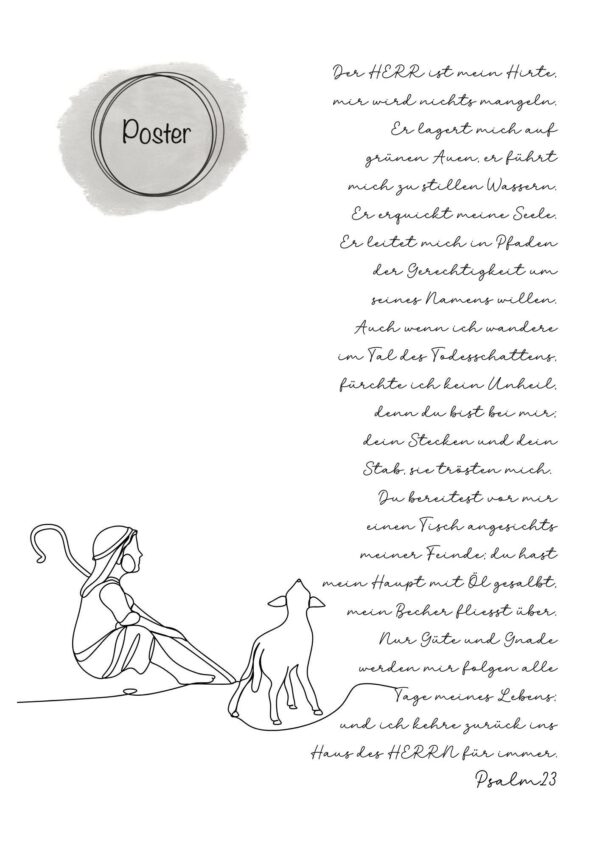 Poster
Der HERR ist mein Hirte,
mir wird nichts mangeln.
Er lagert mich auf
grünen Auen, er führt
mich zu stillen Wassern.
Er erquickt meine Seele.
Er leitet mich in Pfaden
der Gerechtigkeit um
seines Namens willen.
Auch wenn ich wandere
im Tal des Todesschattens,
fürchte ich kein Unheil,
denn du bist bei mir;
dein Stecken und dein
Stab, sie trösten mich.
Du bereitest vor mir
einen Tisch angesichts
meiner Feinde; du hast
mein Haupt mit Öl gesalbt,
mein Becher fliesst über.
Nur Güte und Gnade
werden mir folgen alle
Tage meines Lebens;
und ich kehre zurück ins
Haus des HERRN für immer.
Psalm23